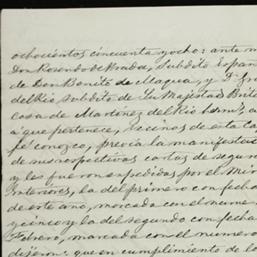 ochocientos cincuenta y ocho: ante m
Don Rosendo de Prada, subdito Españ
de Don Benito de Magua, y D.
del Rio subdito de Su Magestad Brit
casa de Martinez del Rio herm.s, a
que pertenece, vecinos de esta Ca
fe conozco, previa la manifestac
de sus respectivas cartas de segur
y les fueron expedidas por el Min
Interiores, la del primero con fecha
de este año, marcada con el nume
y cinco y la del segundo con fecha
Febrero, marcada con el numero
dijeron: que en cumplimiento de lo